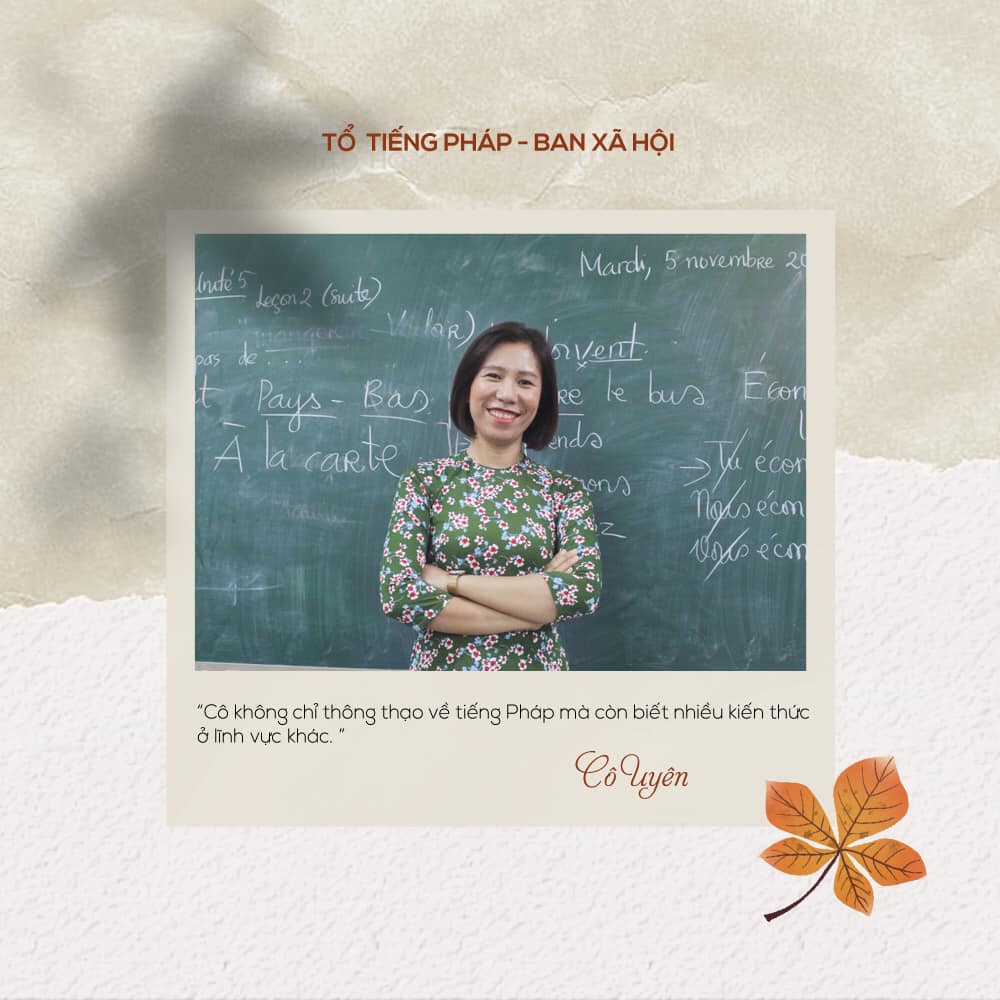 TỔ TIẾNG PHÁP - BAN XÃ HỘI
Mardi, 5 novembre 20
Unité 5
Leçon 2 (suite)
pas de ...
Pays - Bas
le bus
Écon
À la carte
→ Tu écon
Nous écon
Vous écon
"Cô không chỉ thông thạo về tiếng Pháp mà còn biết nhiều kiến thức
ở lĩnh vực khác. "
Cô Uyên